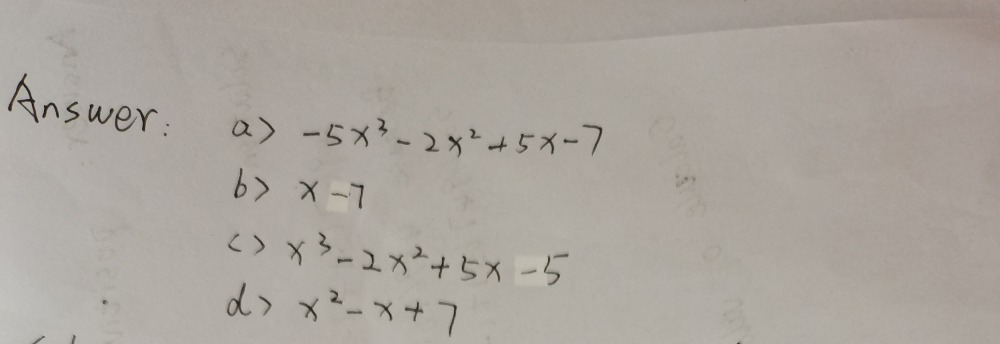 Answer: a> -5x³-2x²+5x-7
b> x-7
c> x³-2x²+5x-5
d> x²-x+7